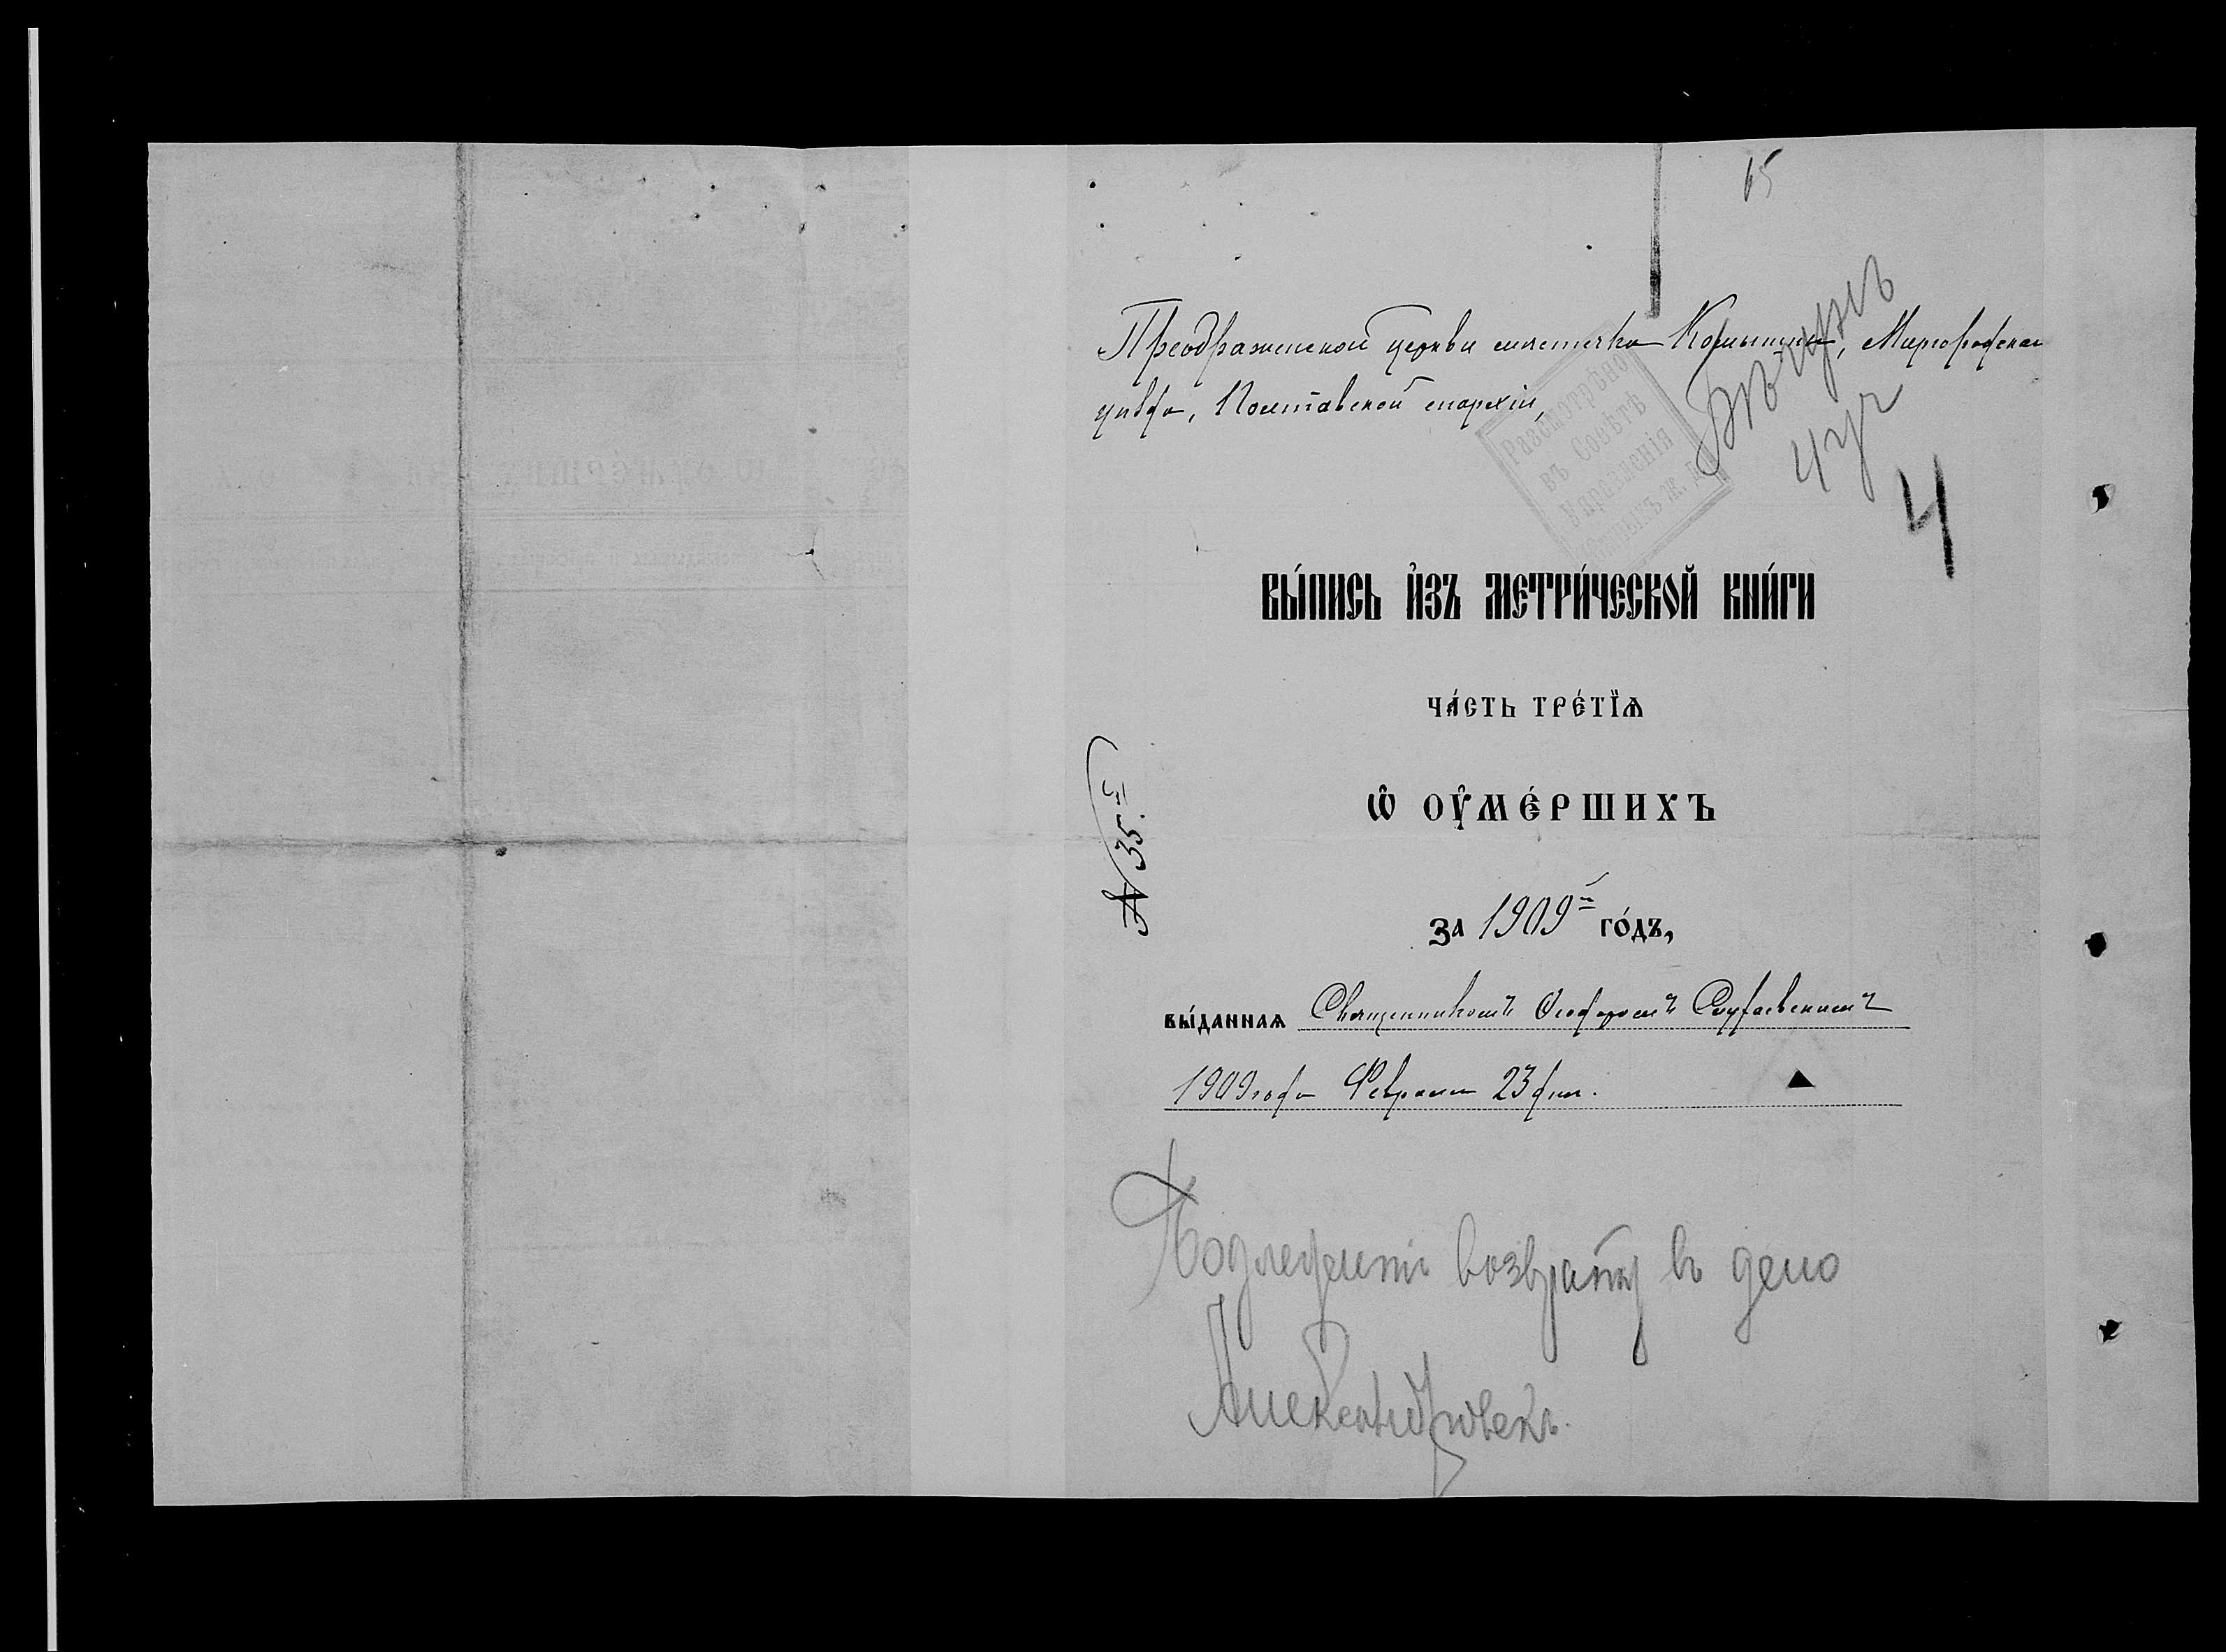 15
Преображенской церкви местечка Комышни, Миргородскаго
уѣзда, Полтавской епархіи,
Разсмотрѣно
въ Совѣтѣ
Управленія
Южныхъ Ж. Д.
4 уч
4
ВЫ́ПИСЬ И҆ЗЪ МЕТРИ́ЧЕСКОЙ КНИ́ГИ
ЧА́СТЬ ТРЕ́ТЇѦ
Ѡ҆ ОУ҆МЕ́РШИХЪ
№ 35.й
ЗА 1909й ГО́ДЪ,
ВЫ́ДАННАѦ Священникомъ Ѳеодоромъ
1909 года Февраля 23 дня.
Подлежитъ возврату въ дело